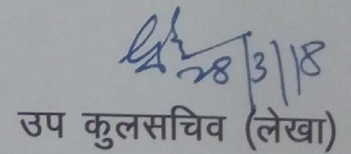 28/3/18
उप कुलसचिव (लेखा)